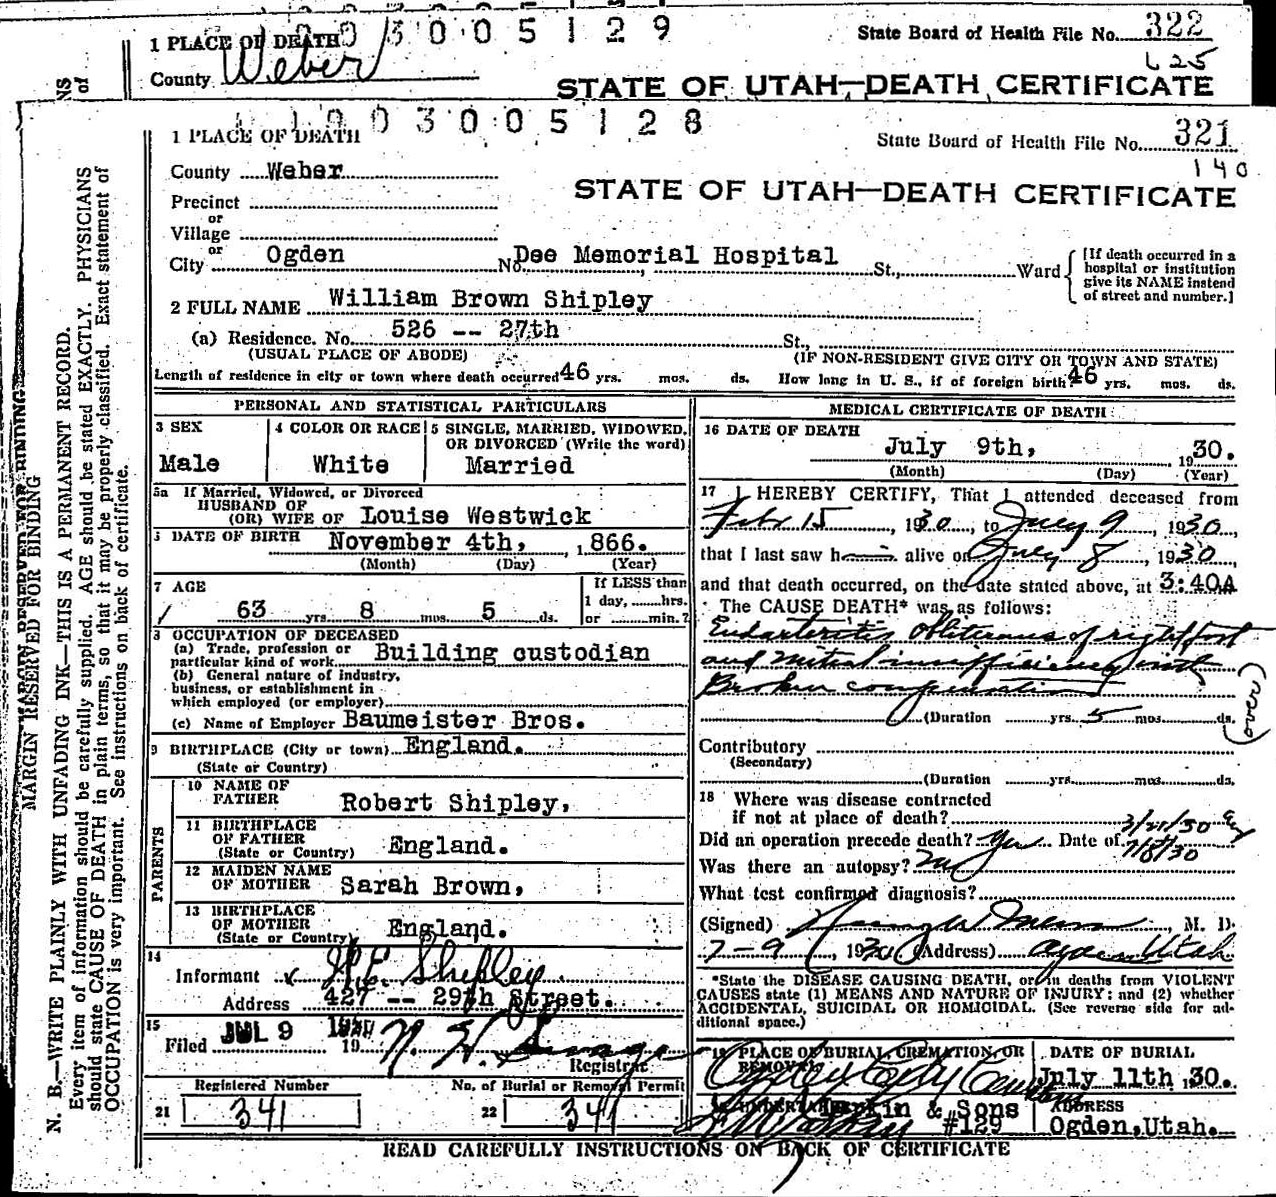 1 PLACE OF DEATH 3005129 State Board of Health File No. 322
County Weber 625
STATE OF UTAH—DEATH CERTIFICATE
1903005128
1 PLACE OF DEATH State Board of Health File No. 321
140
County Weber
STATE OF UTAH—DEATH CERTIFICATE
Precinct
or
Village
or
City Ogden No. Dee Memorial Hospital St., Ward
[If death occurred in a
hospital or institution
give its NAME instead
of street and number.]
2 FULL NAME William Brown Shipley
(a) Residence. No. 526 -- 27th St.,
(USUAL PLACE OF ABODE) (IF NON-RESIDENT GIVE CITY OR TOWN AND STATE)
Length of residence in city or town where death occurred 46 yrs. mos. ds. How long in U. S., if of foreign birth 46 yrs. mos. ds.
PERSONAL AND STATISTICAL PARTICULARS
3 SEX
Male
4 COLOR OR RACE
White
5 SINGLE, MARRIED, WIDOWED,
OR DIVORCED (Write the word)
Married
5a If Married, Widowed, or Divorced
HUSBAND OF
(OR) WIFE OF Louise Westwick
DATE OF BIRTH November 4th, 1866.
(Month) (Day) (Year)
7 AGE
63 yrs 8 mos 5 ds.
If LESS than
1 day, hrs.
or min.?
8 OCCUPATION OF DECEASED
(a) Trade, profession or
particular kind of work Building custodian
(b) General nature of industry,
business, or establishment in
which employed (or employer)
(c) Name of Employer Baumeister Bros.
9 BIRTHPLACE (City or town) England.
(State or Country)
PARENTS
10 NAME OF
FATHER Robert Shipley,
11 BIRTHPLACE
OF FATHER
(State or Country) England.
12 MAIDEN NAME
OF MOTHER Sarah Brown,
13 BIRTHPLACE
OF MOTHER
(State or Country) England.
14
Informant Shipley
Address 427 -- 29th Street.
15
Filed JUL 9 1930 19
Registrar
Registered Number
21 341
No. of Burial or Removal Permit
22 341
MEDICAL CERTIFICATE OF DEATH
16 DATE OF DEATH
July 9th, 1930.
(Month) (Day) (Year)
17 I HEREBY CERTIFY, That I attended deceased from
Feb 15, 1930, to July 9, 1930,
that I last saw h alive on July 8, 1930,
and that death occurred, on the date stated above, at 3:40A
The CAUSE DEATH* was as follows:
Endarteritis obliterans of right foot
and mitral insufficiency with
Broken compensation
(over)
(Duration yrs. 5 mos. ds.
Contributory
(Secondary)
(Duration yrs. mos. ds.
18 Where was disease contracted
if not at place of death?
3/21/30
Did an operation precede death? Yes Date of 7/8/30
Was there an autopsy? No
What test confirmed diagnosis?
(Signed) M. D.
7-9, 1930 (Address) Ogden Utah
*State the DISEASE CAUSING DEATH, or in deaths from VIOLENT
CAUSES state (1) MEANS AND NATURE OF INJURY: and (2) whether
ACCIDENTAL, SUICIDAL OR HOMICIDAL. (See reverse side for ad-
ditional space.)
19 PLACE OF BURIAL, CREMATION, OR
REMOVAL
Ogden City Cemetery
DATE OF BURIAL
July 11th 1930.
UNDERTAKER Larkin & Sons
#129
ADDRESS
Ogden, Utah.
READ CAREFULLY INSTRUCTIONS ON BACK OF CERTIFICATE
MARGIN RESERVED FOR BINDING
N. B.—WRITE PLAINLY WITH UNFADING INK—THIS IS A PERMANENT RECORD.
Every item of information should be carefully supplied. AGE should be stated EXACTLY. PHYSICIANS
should state CAUSE OF DEATH in plain terms, so that it may be properly classified. Exact statement of
OCCUPATION is very important. See instructions on back of certificate.